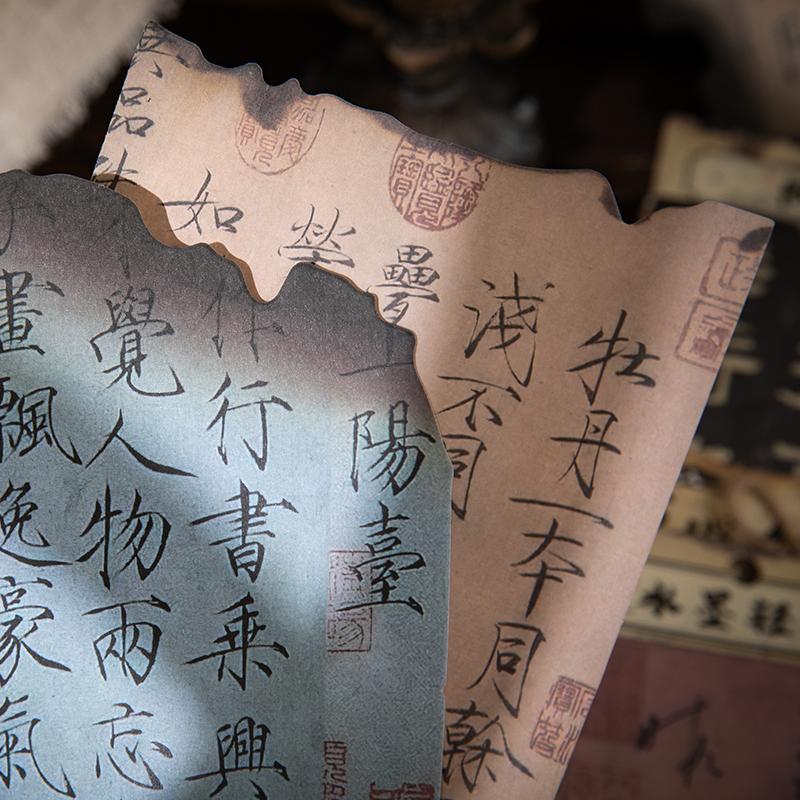 牡丹一本同幹
淺不同
疊
如
品
上陽臺
作行書乘興
覺人物兩忘
畫飄逸豪氣
水墨